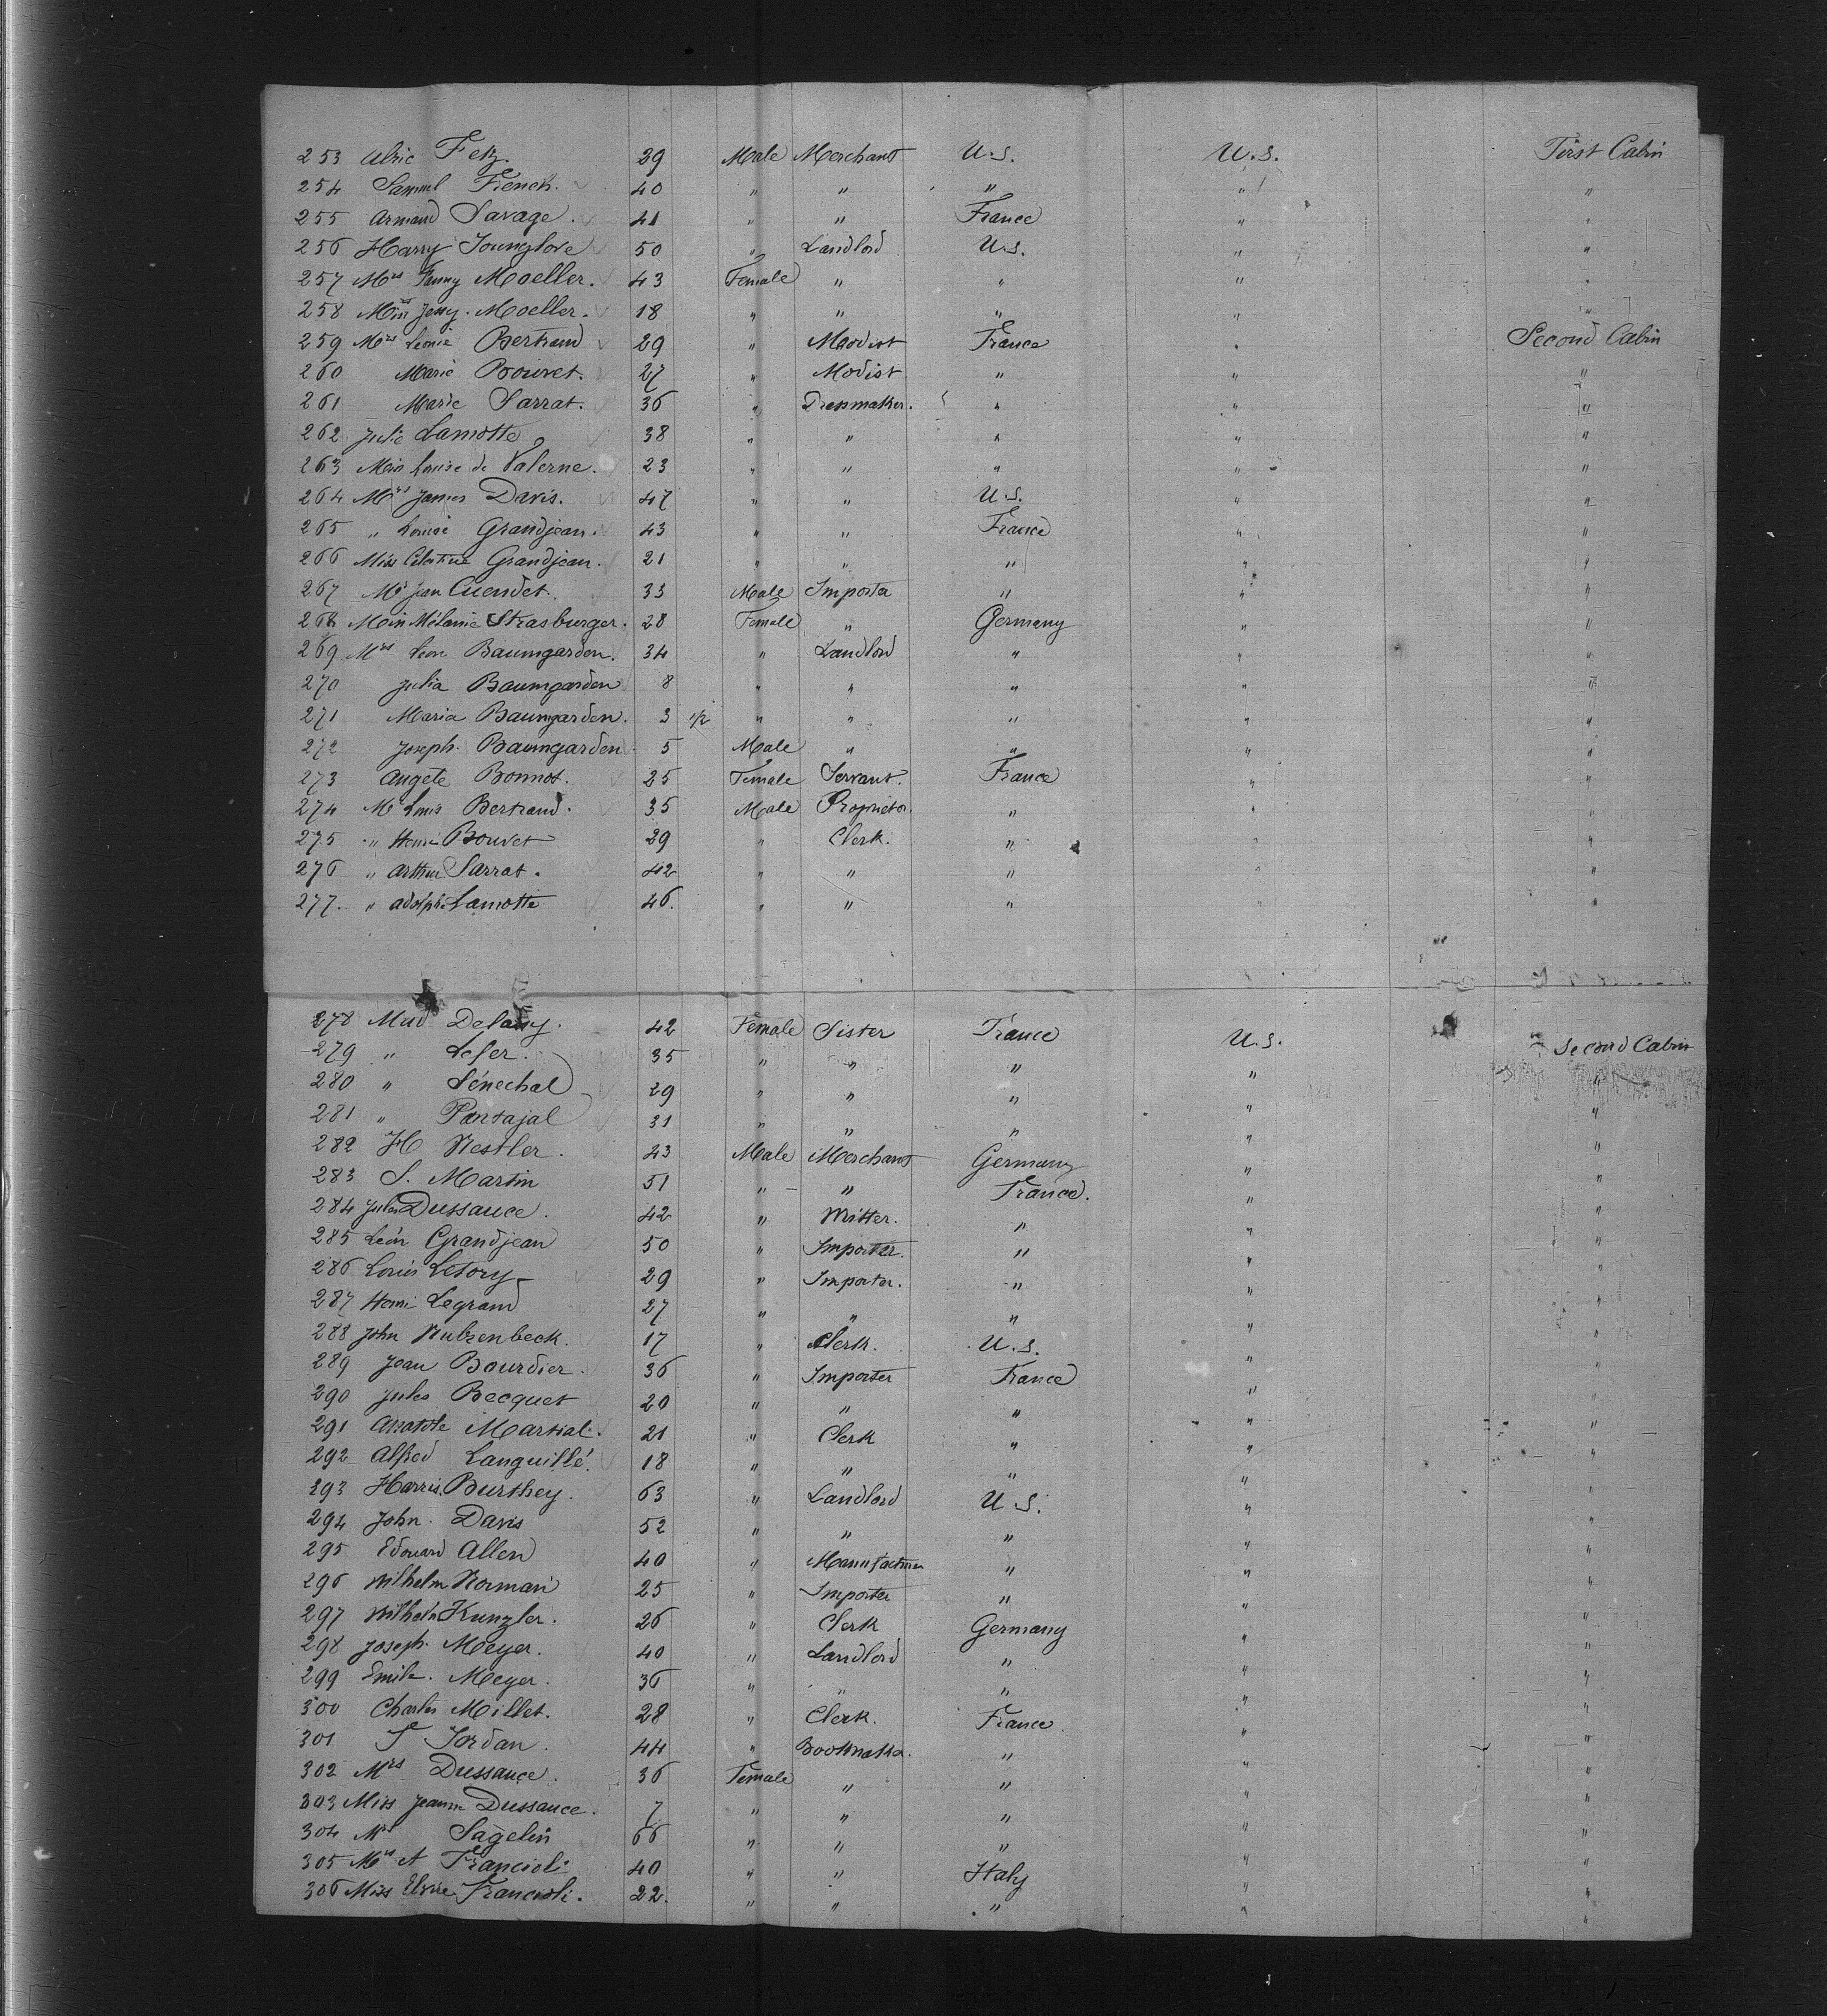 253 Ulric Fetz. 29 Male Merchant U.S. U.S. First Cabin
254 Samuel French. 40 " " " " "
255 Armand Savage. 41 " " France " "
256 Harry Younglove 50 " Landlord U.S. " "
257 Mrs Fanny Moeller. 43 Female " " " "
258 Miss Jeny. Moeller. 18 " " " " "
259 Mrs Leonie Bertrand 29 " Modist France " Second Cabin
260 Marie Bouvet. 27 " Modist " " "
261 Marie Sarrat. 36 " Dressmaker. " " "
262 Julie Lamotte 38 " " " " "
263 Miss Louise de Valerne. 23 " " " " "
264 Mrs James Davis. 47 " " U.S. " "
265 " Louise Grandjean. 43 " " France " "
266 Miss Celestine Grandjean. 21 " " " " "
267 Mr Jean Cuendet. 33 Male Importer " " "
268 Miss Mélanie Strasburger. 28 Female " Germany " "
269 Mrs Leon Baumgarden. 34 " Landlord " " "
270 Julia Baumgarden 8 " " " " "
271 Maria Baumgarden. 3 1/2 " " " " "
272 Joseph. Baumgarden 5 Male " " " "
273 Angele Bonnot. 25 Female Servant. France " "
274 Mr Louis Bertrand. 35 Male Proprietor. " " "
275 " Henri Bouvet 29 " Clerk. " " "
276 " Arthur Sarrat. 42 " " " " "
277. " Adolphe Lamotte 46. " " " " "
278 Mud Delany. 42 Female Sister France U.S. Second Cabin
279 " Lefer. 35 " " " " "
280 " Sénechal 29 " " " " "
281 " Portajal 31 " " " " "
282 H Nestler. 43 Male Merchant Germany " "
283 S. Martin 51 " " France. " "
284 Jules Dussauce. 42 " " " "
285 Léon Grandjean 50 " Importer. " " "
286 Louis Letory 29 " Importer. " " "
287 Henri Legrand 27 " " " " "
288 John Nubzenbeck. 17 " Clerk. U.S. " "
289 Jean Bourdier. 36 " Importer France " "
290 Jules Becquet 20 " " " " "
291 Martial. 21 " Clerk " " "
292 Alfred Languillé. 18 " " " " "
293 Harris. Burthey. 63 " Landlord U.S. " "
294 John. Davis 52 " " " " "
295 Edouard Allen 40 " Manufacturer " " "
296 Wilhelm Norman 25 " Importer " " "
297 Wilhelm Kunzler. 26 " Clerk Germany " "
298 Joseph. Meyer. 40 " Landlord " " "
299 Emile. Meyer. 36 " " " " "
300 Charles Millet. 28 " Clerk. France " "
301 Jordan. 44 " Bookmaker. " " "
302 Mrs Dussauce. 36 Female " " " "
303 Miss Jeanne Dussauce. 7 " " " " "
304 Mrs Sagelin 66 " " " " "
305 Mrs A Francioli 40 " " Italy " "
306 Miss Elvire Francioli. 22. " " " " "